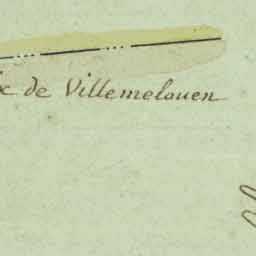 de Villemelouen